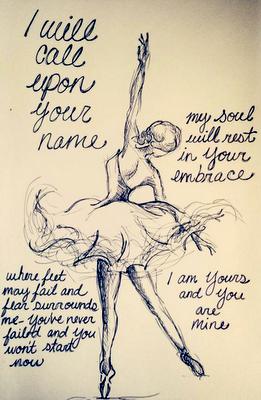 I will
call
upon
your
name
my soul
will rest
in your
embrace
where feet
may fail and
fear surrounds
me - You've never
failed and you
won't start
now
I am Yours
and You
are
mine